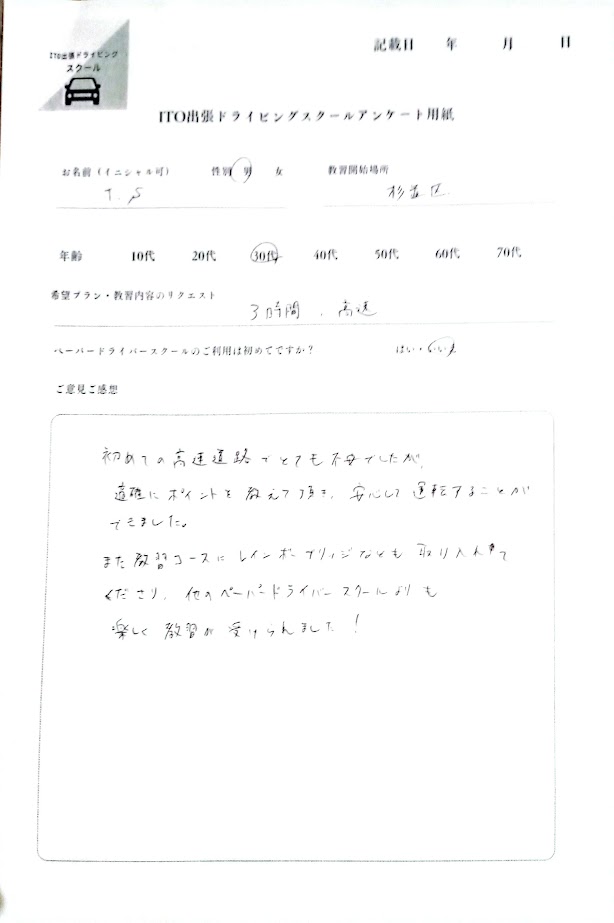 ITO出張ドライビング
スクール
記載日 年 月 日
ITO出張ドライビングスクールアンケート用紙
お名前(イニシャル可) 性別 男 女 教習開始場所
T.S 杉並区
年齢 10代 20代 30代 40代 50代 60代 70代
希望プラン・教習内容のリクエスト
3時間、高速
ペーパードライバースクールのご利用は初めてですか? はい・いいえ
ご意見ご感想
初めての高速道路でとても不安でしたが、
適確にポイントを教えて頂き、安心して運転することが
できました。
また教習コースにレインボーブリッジなども取り入れて
くださり、他のペーパードライバースクールよりも
楽しく教習が受けられました!